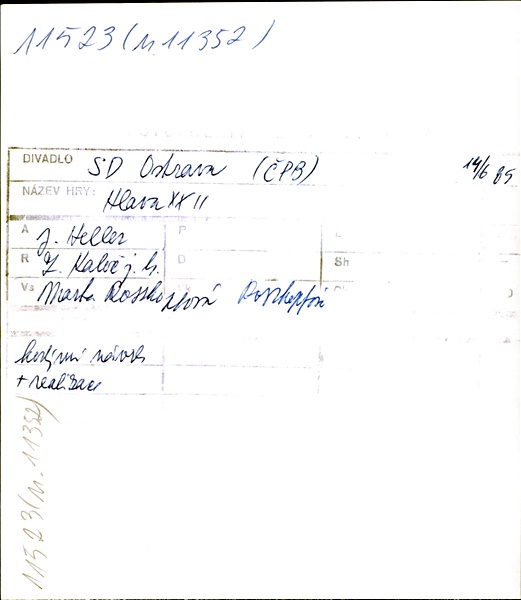 11523 (n. 11352)
DIVADLO SD Ostrava (ČPB) 14/6 85.
NÁZEV HRY: Hlava XXII
A J. Heller P
R Z. Kaloč j. h. D Sh
Vs Marta Roszkopfová Roszkopfová
kostýmní návrh
+ realizace
11523 (n. 11352)